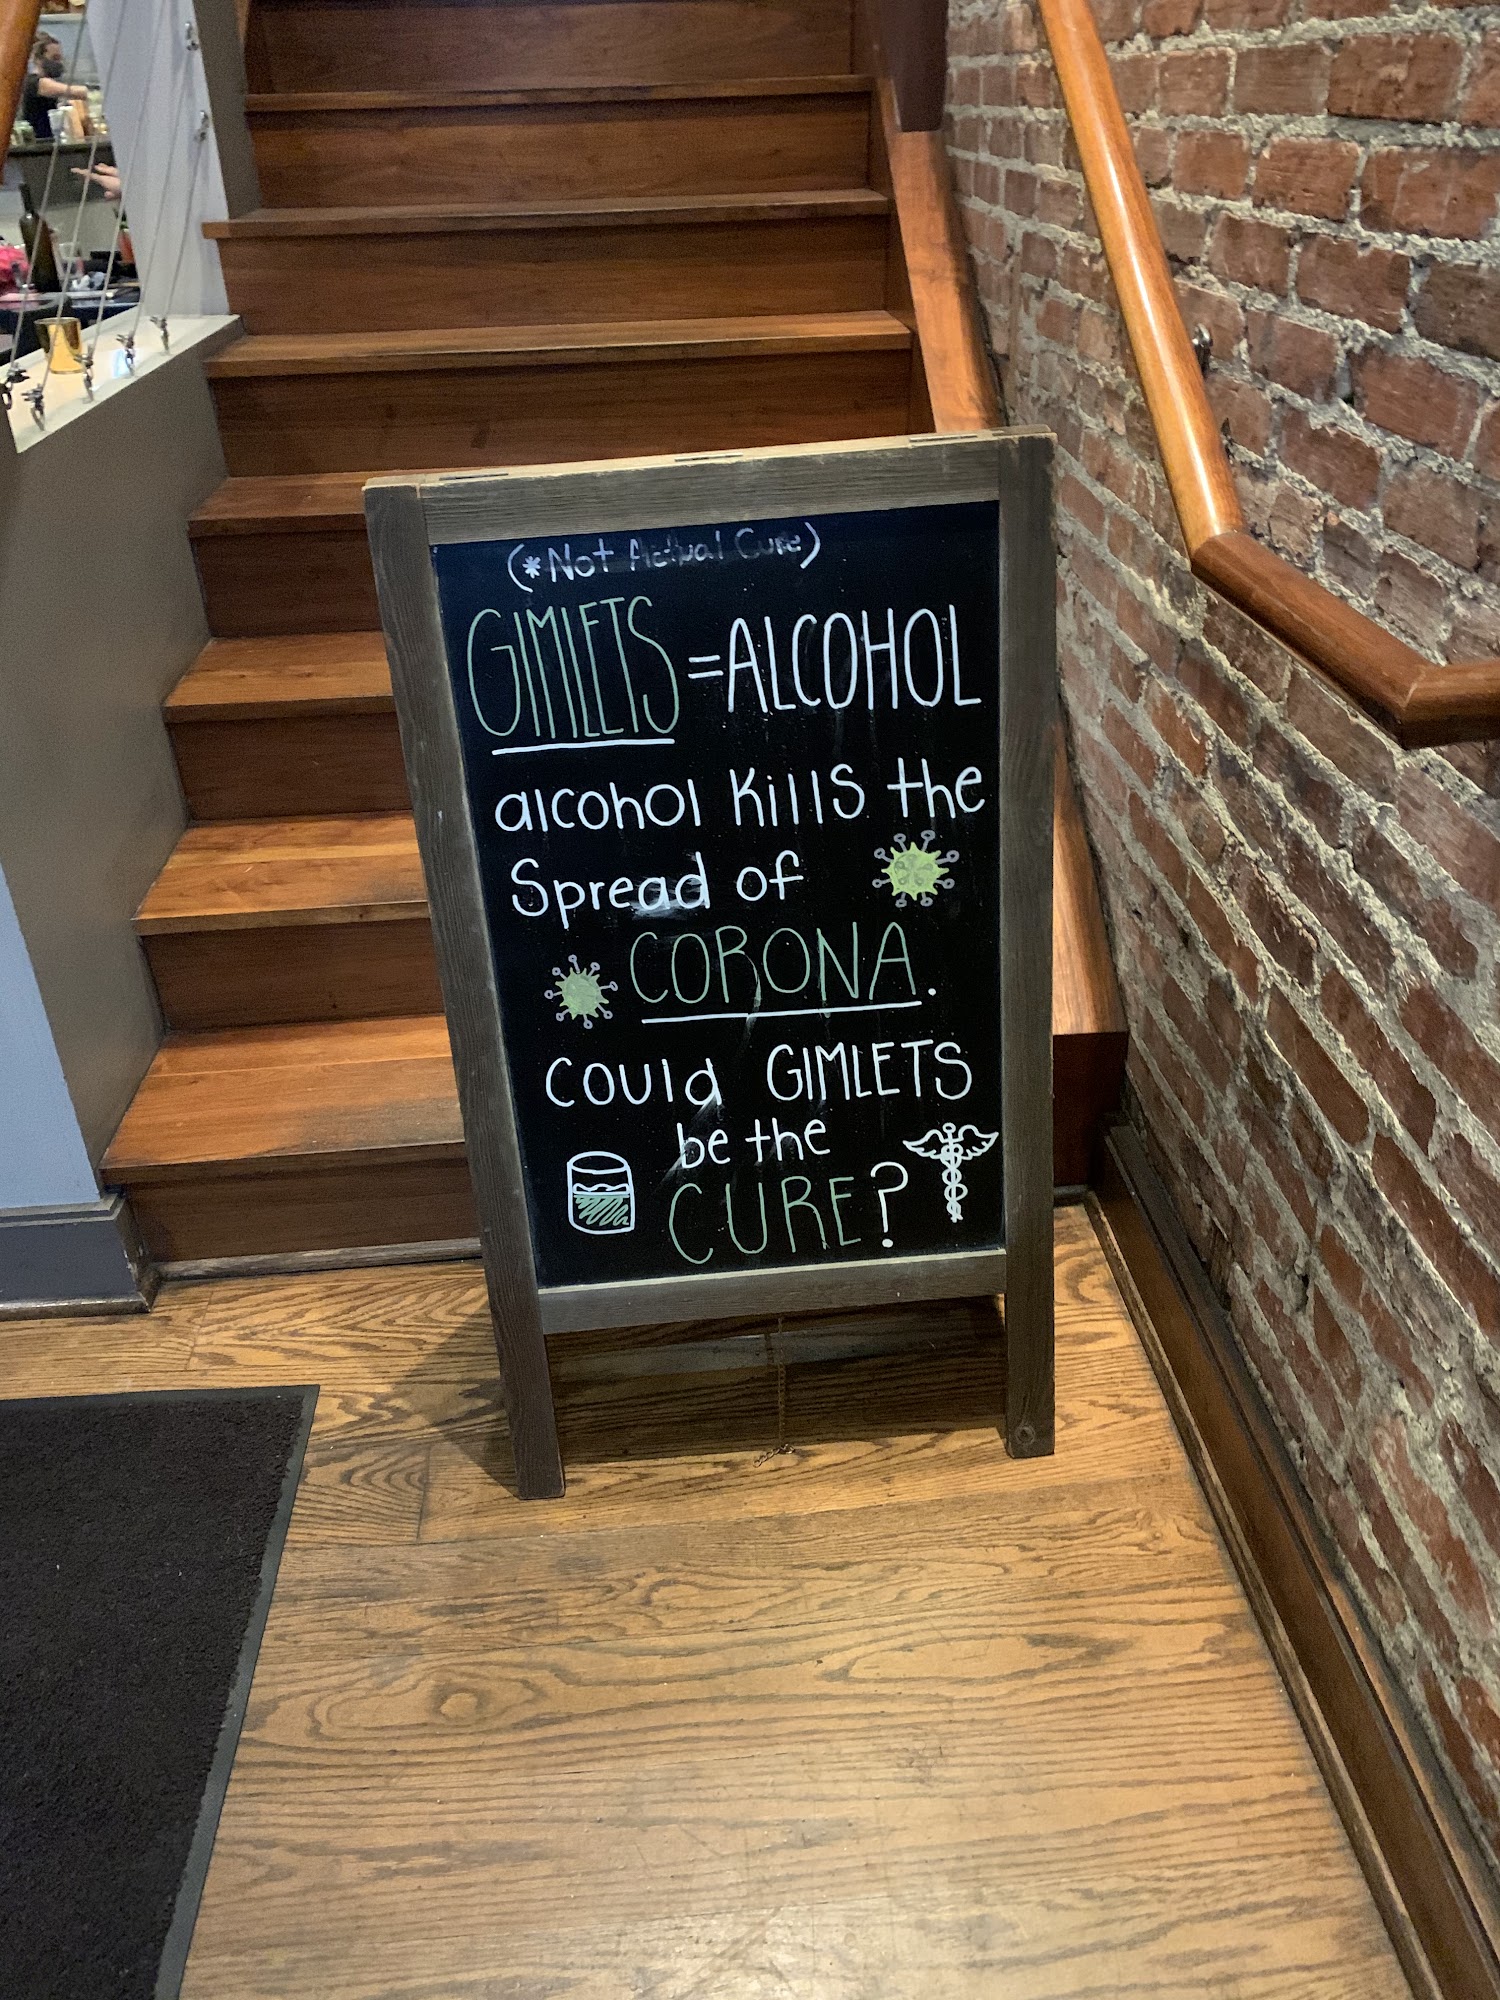 (*Not Actual Cure)
GIMLETS =ALCOHOL
alcohol kills the
Spread of
CORONA.
Could GIMLETS
be the
CURE?